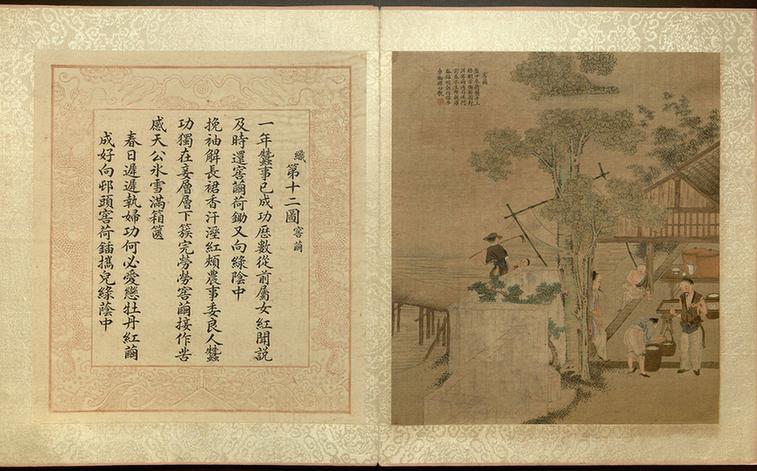 織第十二圖 窖繭
一年蠶事已成功歷數從前屬女紅聞說
及時還窖繭荷鋤又向綠陰中
挽袖解長裙香汗溼紅頰農事委良人蠶
功獨在妾層層下簇完勞勞窖繭接作苦
感天公氷雪滿箱篋
春日遲遲執婦功何必愛戀牡丹紅繭
成好向邨頭窖荷鍤攜兒綠蔭中
窖繭